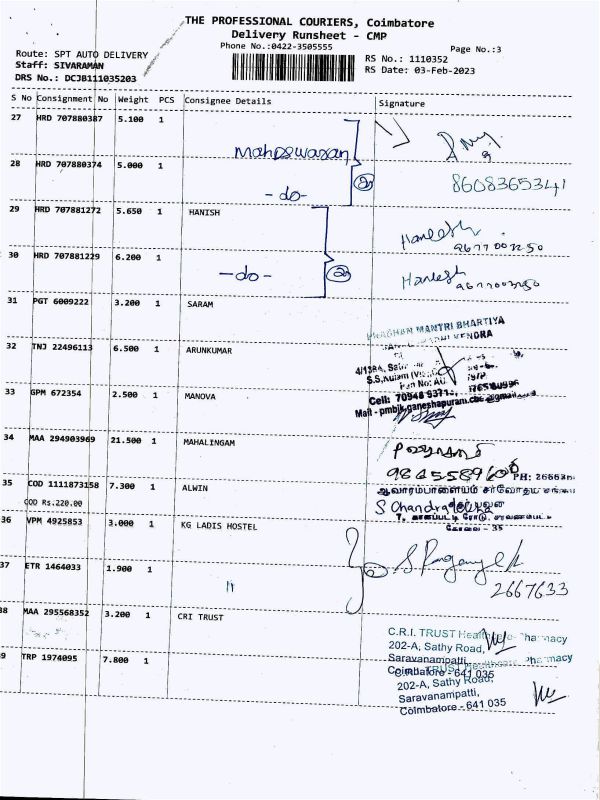 THE PROFESSIONAL COURIERS, Coimbatore
Delivery Runsheet - CMP
Phone No.:0422-3505555
Page No.:3
Route: SPT AUTO DELIVERY
Staff: SIVARAMAN
DRS No.: DCJB111035203
RS No.: 1110352
RS Date: 03-Feb-2023
S No Consignment No Weight PCS Consignee Details Signature
27 HRD 707880387 5.100 1
Maheswaran
28 HRD 707880374 5.000 1
-do- 2
8608365341
29 HRD 707881272 5.650 1 HANISH
Hareesh
9677007250
30 HRD 707881229 6.200 1
-do- 2
Hareesh
31 PGT 6009222 3.200 1 SARAM
PRADHAN MANTRI BHARTIYA
KENDRA
32 TNJ 22496113 6.500 1 ARUNKUMAR
33 GPM 672354 2.500 1 MANOVA
Mail - pmbjk.ganeshapuram.cbe@gmail
34 MAA 294903969 21.500 1 MAHALINGAM
9845589600
35 COD 1111873158 7.300 1 ALWIN
COD Rs.220.00
PH:
ஆவாரம்பாளையம் சர்வோதய
S Chandralekha
கோவை - 35
36 VPM 4925853 3.000 1 KG LADIS HOSTEL
37 ETR 1464033 1.900 1
2667633
38 MAA 295568352 3.200 1 CRI TRUST
C.R.I. TRUST Healthcare Pharmacy
202-A, Sathy Road,
Saravanampatti,
Coimbatore - 641 035
39 TRP 1974095 7.800 1
C.R.I. TRUST Healthcare Pharmacy
202-A, Sathy Road,
Saravanampatti,
Coimbatore - 641 035